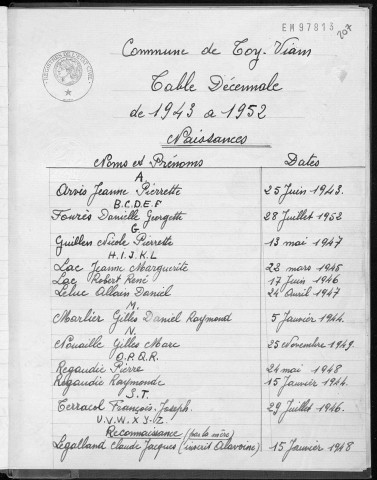 EM97813
207
Commune de Toy-Viam
Table Décennale
de 1943 a 1952
Naissances
Noms et Prénoms Dates
A.
Arvis Jeanne Pierrette 25 Juin 1943.
B.C.D.E.F
Fourès Danielle Georgett 28 Juillet 1952
G.
Guillen Nicole Pierrette 13 mai 1947
H.I.J.K.L
Lac Jeanne Marguerite 22 mars 1945
Lac Robert René 17 Juin 1946
Leluc Allain Daniel 24 Avril 1947
M.
Marlier Gilles Daniel Raymond 5 Janvier 1944.
N.
Nouaille Gilles Marc 25 Novembre 1949.
O.P.Q.R.
Regaudie Pierre 24 mai 1948
Régaudie Raymonde 15 Janvier 1944.
S.T.
Terracol François-Joseph. 29 Juillet 1946.
U.V.W.X.Y-Z.
Reconnaissance (par la mère)
Legalland Claude Jacques (inscrit Alavoine) 15 Janvier 1948